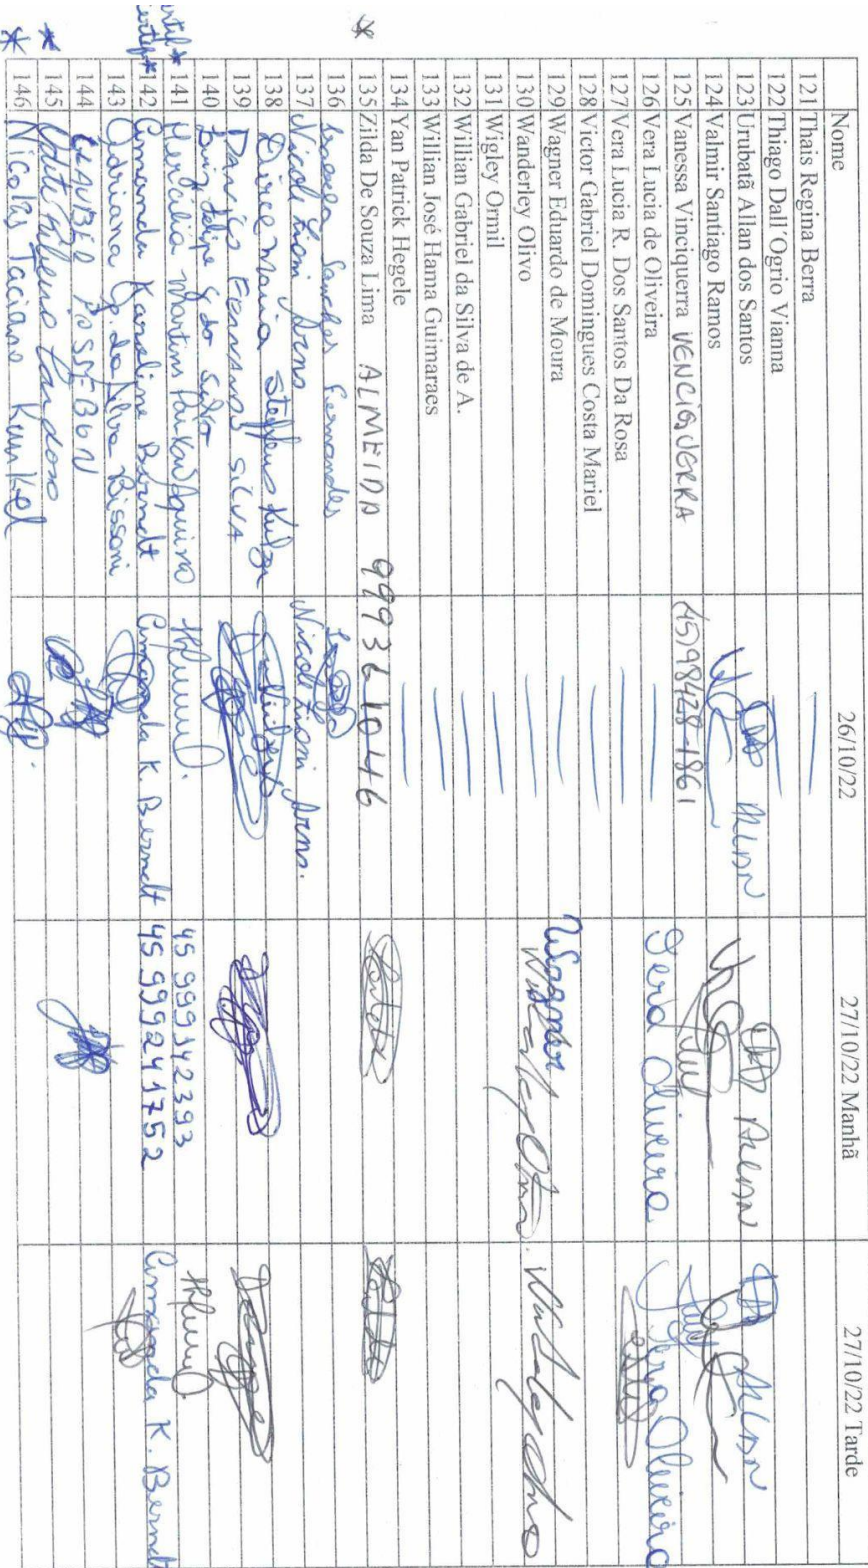 Nome 26/10/22 27/10/22 Manhã 27/10/22 Tarde
121 Thais Regina Berra
122 Thiago Dall'Ogrio Vianna
123 Urubatã Allan dos Santos Allan Allan Allan
124 Valmir Santiago Ramos
125 Vanessa Vinciquerra VENCIGUERRA 45198428-1861
126 Vera Lucia de Oliveira Vera Oliveira Vera Oliveira
127 Vera Lucia R. Dos Santos Da Rosa
128 Victor Gabriel Domingues Costa Mariel
129 Wagner Eduardo de Moura Wagner
130 Wanderley Olivo
131 Wigley Ormil
132 Willian Gabriel da Silva de A.
133 Willian José Hama Guimaraes
134 Yan Patrick Hegele
* 135 Zilda De Souza Lima ALMEIDA 999361046
136 Sanches Fernandes
137 Nicoli Zioni Arns Nicoli Zioni Arns.
138 Dirce Maria Steffens
139 SILVA
140 Luiz Felipe G do
* 141 Martins 45 999142393
* 142 Amanda Karoline Berndt Amanda K Berndt 45 999241752 Amanda K. Berndt
143 Adriana Ap. da Silva Bissoni
144
* 145 Odete Ribeiro Cardoso
* 146 Nicolas Taciano Kunkel